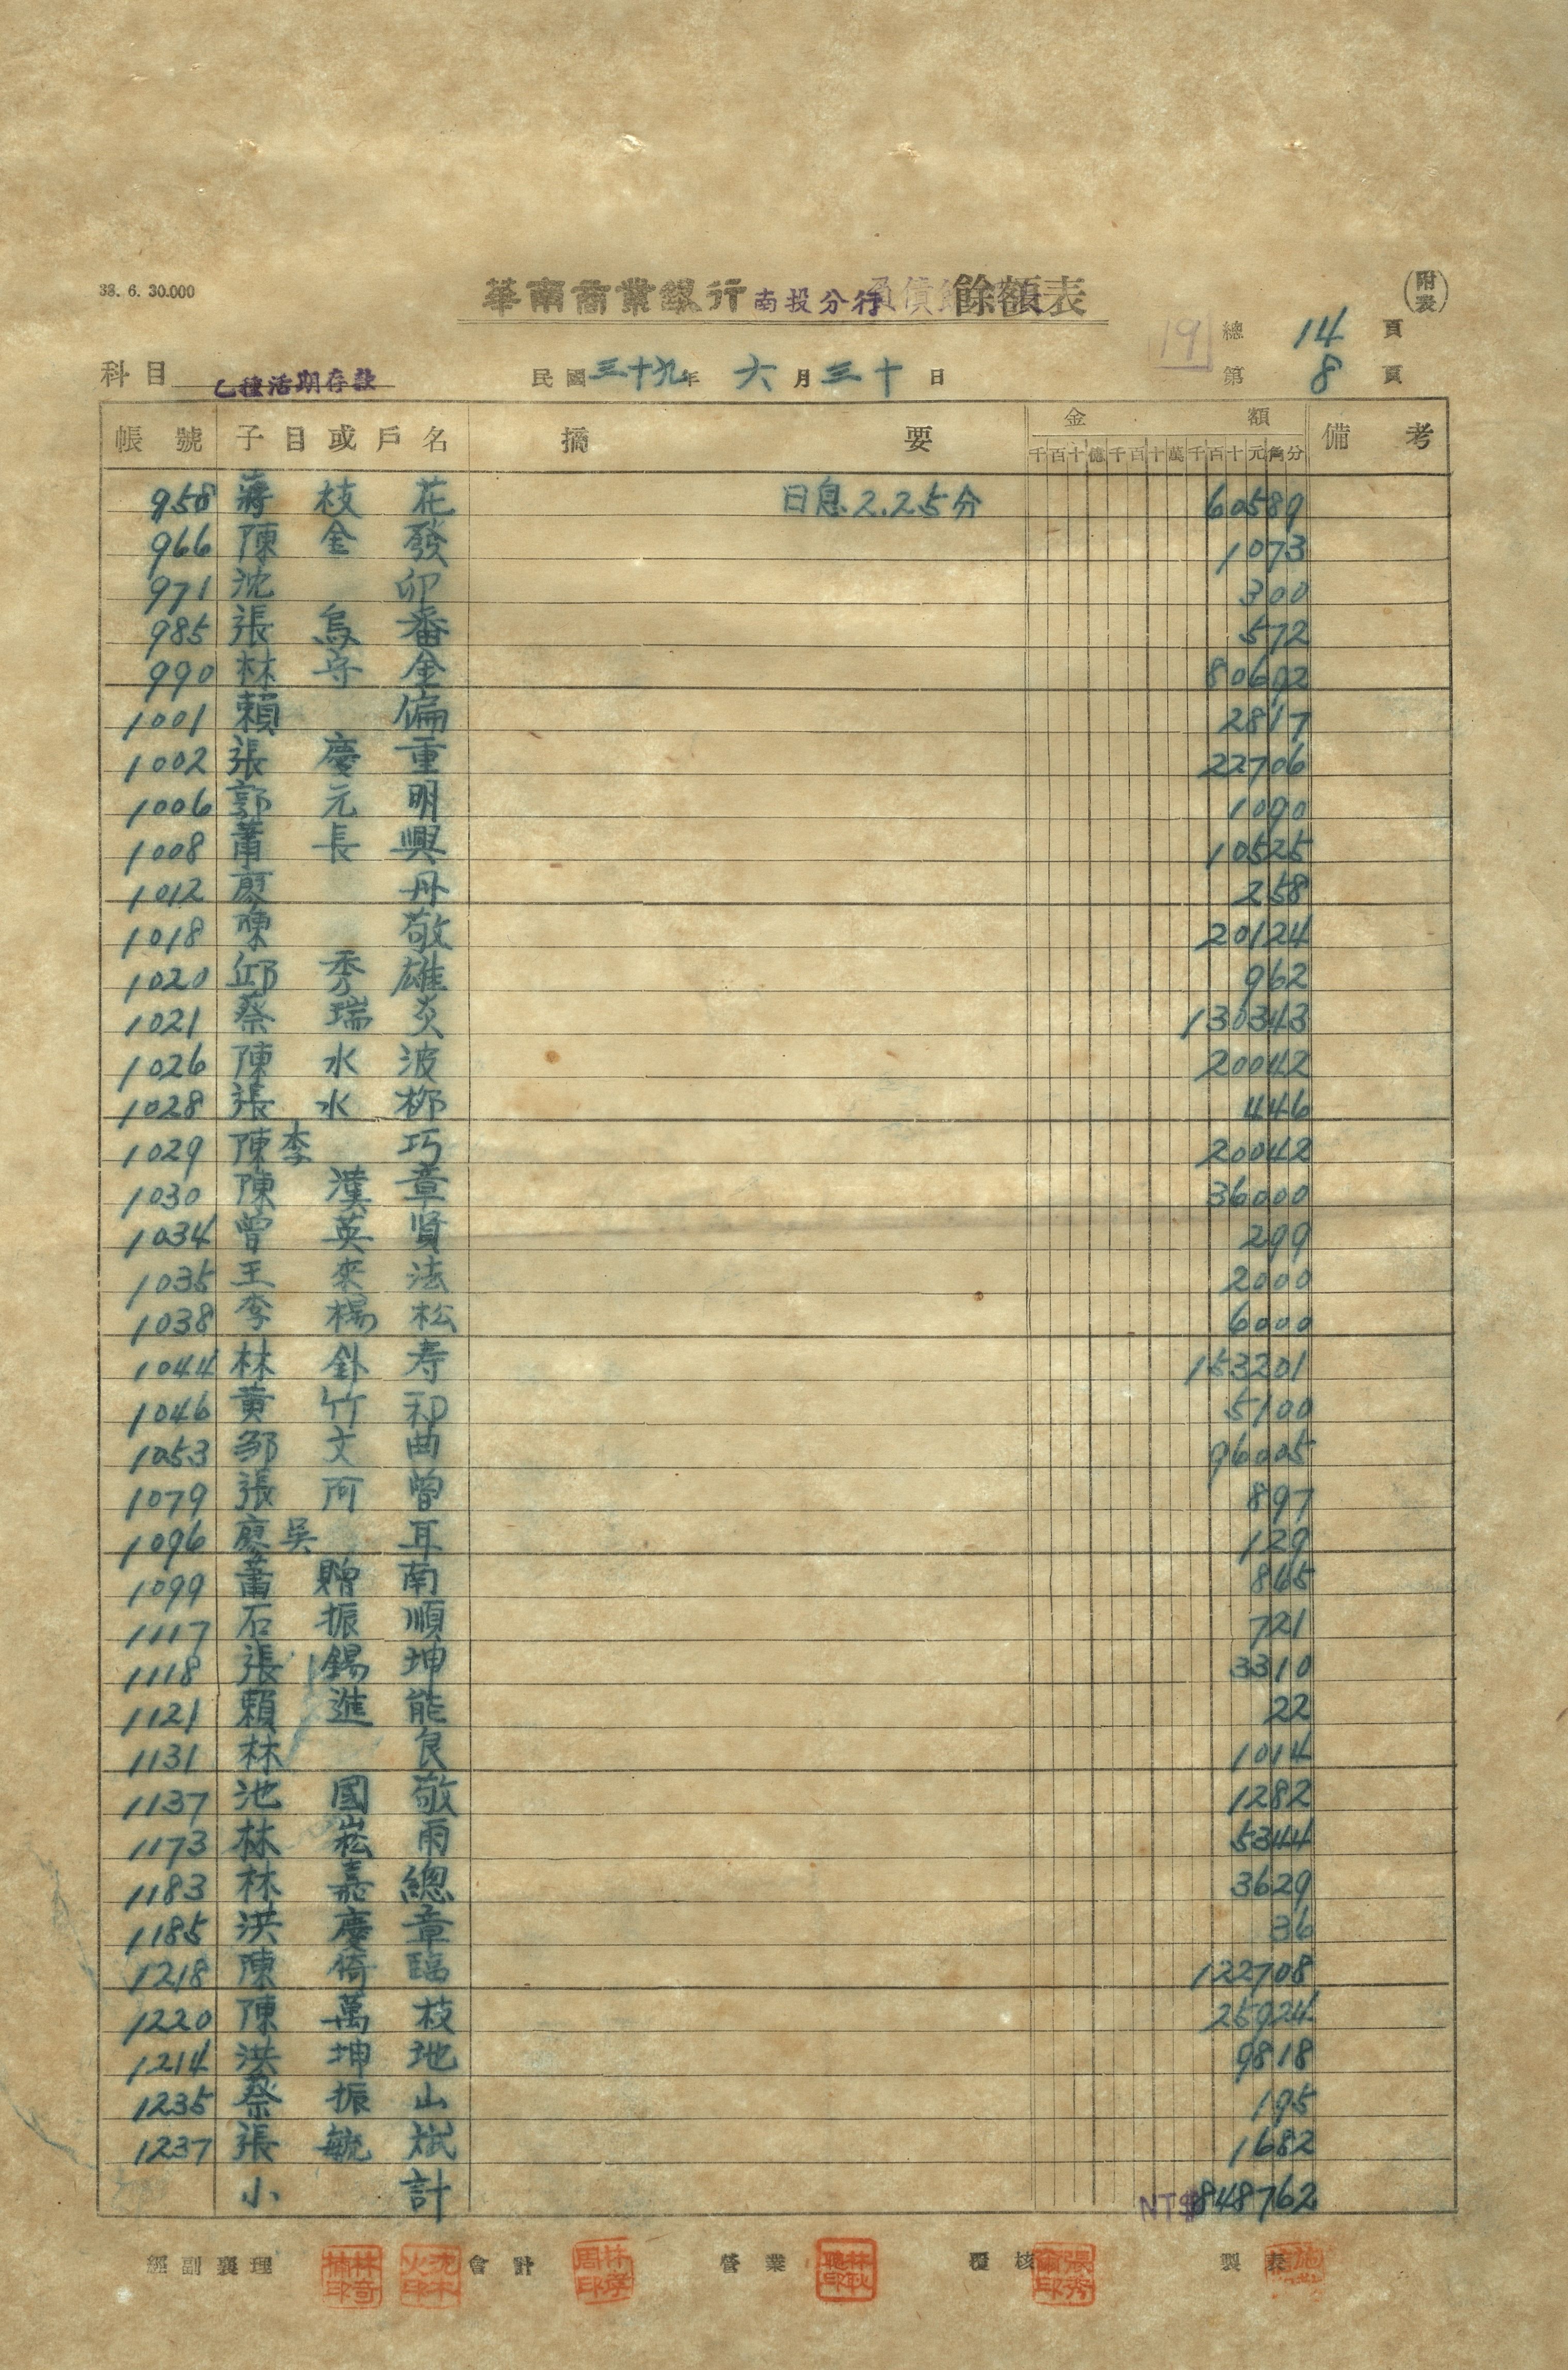 38. 6. 30.000
華南商業銀行南投分行負債餘額表
附表
19
總 14 頁
第 8 頁
科目 乙種活期存款 民國三十九年 六月三十日
帳號 子目或戶名 摘要 金額 備考
千百十億千百十萬千百十元角分
958 蔣枝花 日息2.25分 60589
966 陳金發 1073
971 沈卯 300
985 張烏番 572
990 林守金 80692
1001 賴偏 2817
1002 張慶重 22706
1006 郭元明 1090
1008 蕭長興 10525
1012 廖丹 258
1018 陳敬 20124
1020 邱秀雄 962
1021 蔡瑞炎 130343
1026 陳水波 20042
1028 張水柳 446
1029 陳李巧 20042
1030 陳漢章 36000
1034 曾英賢 299
1035 王來法 2000
1038 李楊松 6000
1044 林針寿 153201
1046 黃竹 5100
1053 鄒文曲 96005
1079 張阿曾 897
1096 廖吳耳 129
1099 蕭贈南 845
1117 石振順 721
1118 張錫坤 3310
1121 賴進能 22
1131 林良 1014
1137 池國敬 1282
1173 林崧雨 5344
1183 林嘉總 3629
1185 洪慶章 36
1218 陳倚臨 122708
1220 陳萬枝 25924
1214 洪坤地 9818
1235 蔡振山 195
1237 張毓斌 1682
小計 NT$848762
經副襄理 會計 營業 覆核 製表